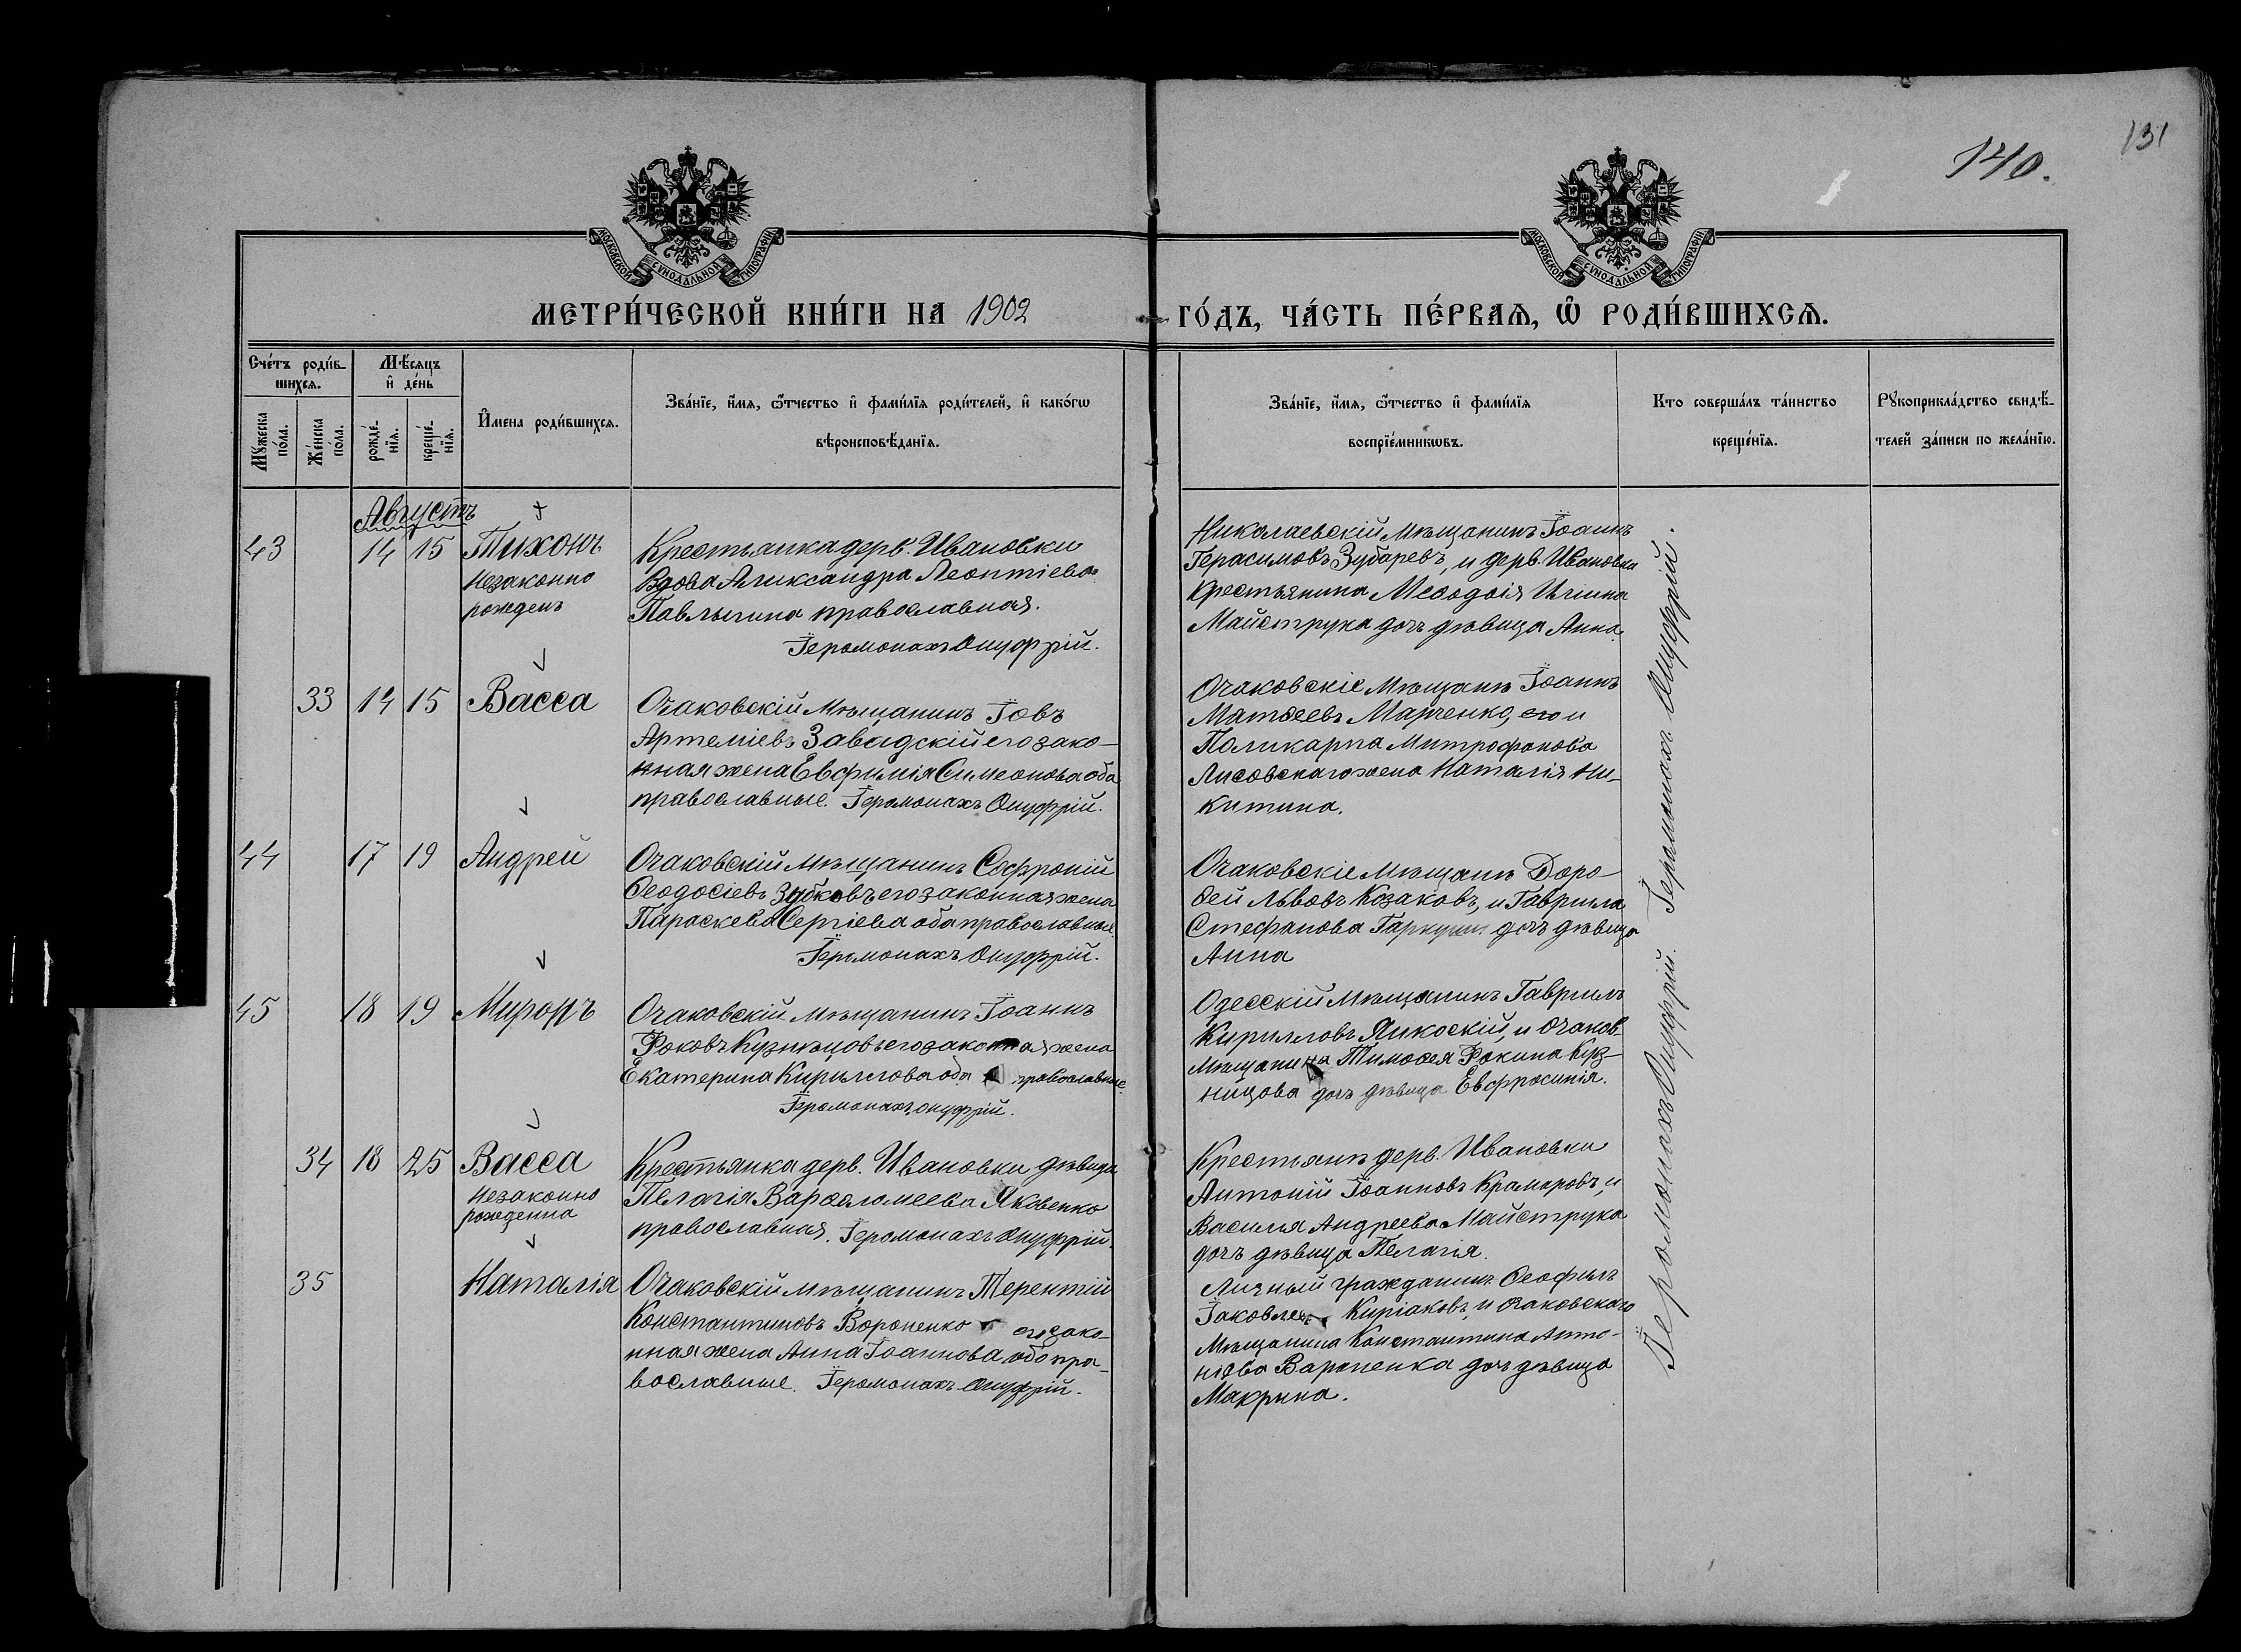 131
140.
МОСКОВСКОЙ СѴНОДАЛЬНОЙ ТИПОГРАФІИ
МОСКОВСКОЙ СѴНОДАЛЬНОЙ ТИПОГРАФІИ
МЕТРИ́ЧЕСКОЙ КНИ́ГИ НА 1902
ГО́ДЪ, ЧА́СТЬ ПЕ́РВАѦ, Ѡ҆ РОДИ́ВШИХСѦ.
Сче́тъ роди́в-
шихсѧ.
Мѣ́сѧцъ
и҆ де́нь
Мꙋ́жеска
по́ла.
Же́нска
по́ла.
рожде́-
нїѧ.
креще́-
нїѧ.
И҆мена роди́вшихсѧ.
Зва́нїе, и҆́мѧ, ѻ҆́тчество и҆ фами́лїѧ роди́телей, и҆ како́гѡ
вѣроисповѣ́данїѧ.
Зва́нїе, и҆́мѧ, ѻ҆́тчество и҆ фами́лїѧ
воспрїе́мникѡвъ.
Кто соверша́лъ та́инство
креще́нїѧ.
Рꙋкоприкла́дство свидѣ́-
телей за́писи по жела́нїю.
Августъ
43 14 15 Тихонъ
незаконно
рожденъ
Крестьянка дерв. Ивановки
Вдова Александра Леонтіева
Павлычина православная.
Іеромонахъ Онуфрій.
Николаевскій Мѣщанинъ Іоаннъ
Герасимовъ Зубаревъ, и дерв. Ивановки
Крестьянина Меѳодія Ильина
Майструка дочь дѣвица Анна.
33 14 15 Васса
Очаковскій Мѣщанинъ Іовъ
Артеміевъ Завадскій его зако-
нная жена Евфимія Симеонова оба
православные. Іеромонахъ Онуфрій.
Очаковскіе Мѣщане Іоаннъ
Матѳеевъ Марченко, и
Поликарпа Митрофанова
Лисовскаго жена Наталія Ни-
китина.
44 17 19 Андрей
Очаковскій мѣщанинъ Софроній
Ѳеодосіевъ Зубковъ его законная жена
Параскева Сергіева оба православные.
Іеромонахъ Онуфрій.
Очаковскіе Мѣщане Доро-
ѳей Львовъ Козаковъ, и Гавріила
Стефанова дочь дѣвица
Анна
45 18 19 Миронъ
Очаковскій мѣщанинъ Іоаннъ
Фоковъ Кузнецовъ его законная жена
Екатерина Кириллова оба православные.
Іеромонахъ Онуфрій.
Одесскій Мѣщанинъ Гавріилъ
Кирилловъ и Очаков.
Мѣщанина Тимоѳея Фокина Куз-
нецова дочь дѣвица Евфросинія.
34 18 25 Васса
незаконно
рожденна
Крестьянка дерв. Ивановки дѣвица
Пелагія Варѳоломеева Яковенко
православная. Іеромонахъ Онуфрій.
Крестьяне дерв. Ивановки
Антоній Іоанновъ Крамаровъ, и
Василія Андреева Майструка
дочь дѣвица Пелагія.
35 Наталія
Очаковскій мѣщанинъ Терентій
Константиновъ Вороненко его зако-
нная жена Анна Іоаннова оба пра-
вославные. Іеромонахъ Онуфрій.
Личный гражданинъ Ѳеофилъ
Іаковлевъ Киріаковъ, и Очаковскаго
Мѣщанина Константина Анто-
ніева Вороненка дочь дѣвица
Макрина.
Іеромонахъ Онуфрій. Іеромонахъ Онуфрій.